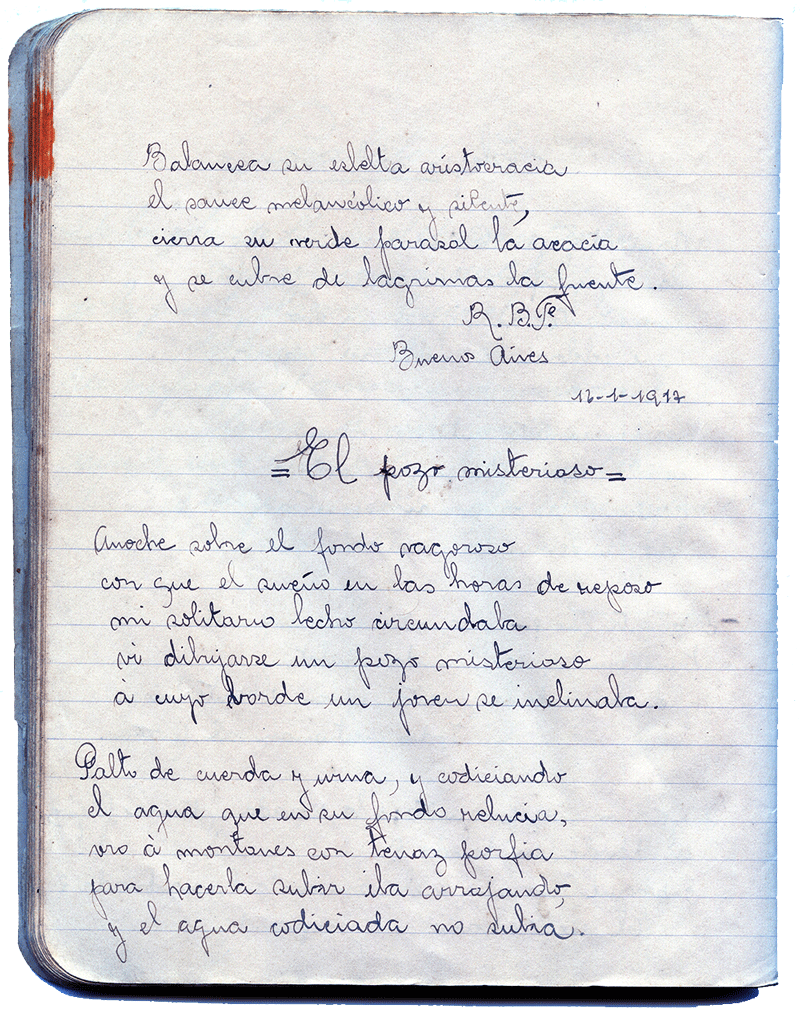 Balancea su esbelta aristocracia
el sauce melancólico y silente,
cierra su verde parasol la acacia
y se cubre de lágrimas la fuente.
R. B. Fe.
Buenos Aires
12-1-1917
=El pozo misterioso=
Anoche sobre el fondo vagoroso
con que el sueño en las horas de reposo
mi solitario lecho circundaba
vi dibujarse un pozo misterioso
à cuyo borde un joven se inclinaba.
Falto de cuerda y urna, y codiciando
el agua que en su fondo relucia,
oro à montones con tenaz porfia
para hacerla subir iba arrojando,
y el agua codiciada no subia.